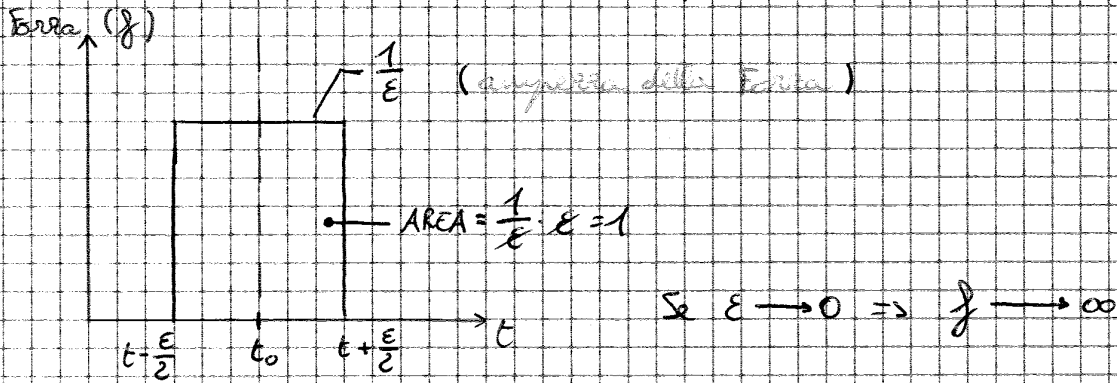 Forza (f)
1/ε (ampiezza della Forza)
AREA = 1/ε · ε = 1
Se ε → 0 => f → ∞
t-ε/2 t₀ t+ε/2 t